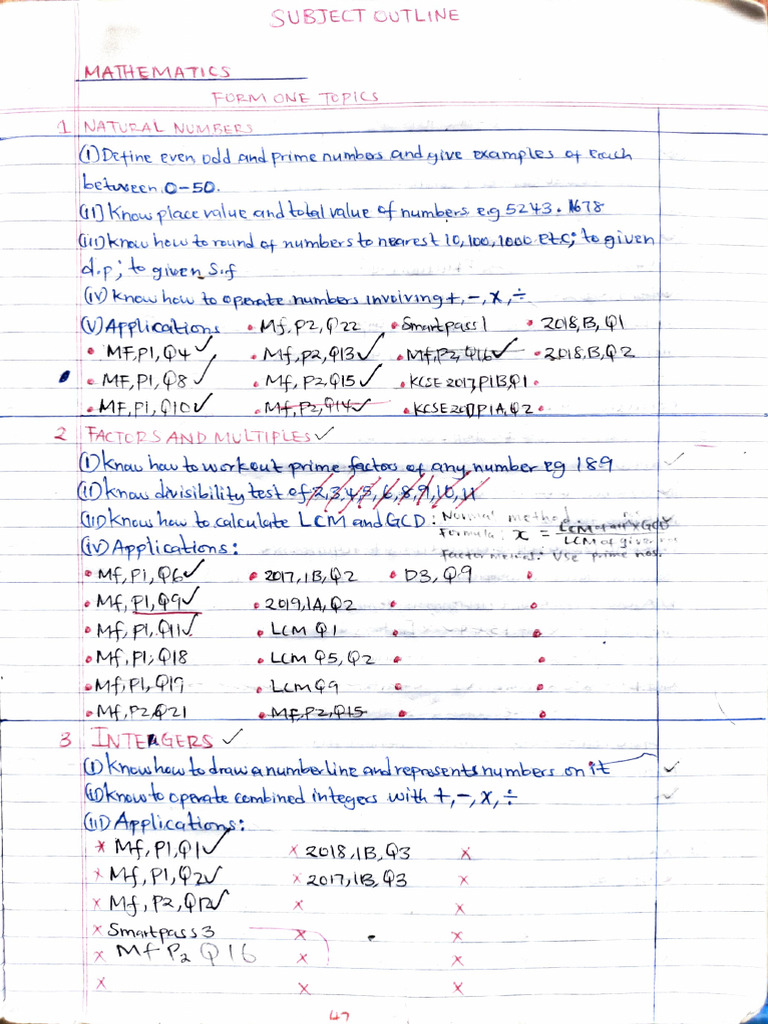 SUBJECT OUTLINE
MATHEMATICS
FORM ONE TOPICS
1 NATURAL NUMBERS
(i) Define even odd and prime numbers and give examples of each
between 0-50.
(ii) Know place value and total value of numbers e.g 5243.1678
(iii) Know how to round of numbers to nearest 10,100,1000 etc; to given
d.p; to given s.f
(iv) Know how to operate numbers involving +, -, x, ÷
(v) Applications • Mf, P2, Q22 • Smartpass 1 • 2018, B, Q1
• MF, P1, Q4 ✓ • Mf, P2, Q13 ✓ • Mf, P2, Q16 ✓ • 2018, B, Q2
• MF, P1, Q8 ✓ • Mf, P2, Q15 ✓ • KCSE 2017, P1B, Q1 •
• MF, P1, Q10 ✓ • Mf, P2, Q14 ✓ • KCSE 2017 P1A, Q2 •
2 FACTORS AND MULTIPLES ✓
(i) Know how to workout prime factors of any number eg 189 ✓
(ii) Know divisibility test of 2,3,4,5,6,8,9,10,11
(iii) Know how to calculate LCM and GCD: Normal method
Formula: x = LCM of all x GCD / LCM of given
(iv) Applications: Factor method: Use prime nos.
• Mf, P1, Q6 ✓ • 2017, 1B, Q2 • D3, Q9 •
• Mf, P1, Q9 ✓ • 2019, 1A, Q2 • •
• Mf, P1, Q11 ✓ • LCM Q1 • •
• Mf, P1, Q18 • LCM Q5, Q2 • •
• Mf, P1, Q17 • LCM Q9 • •
• Mf, P2 Q21 • Mf, P2, Q15 • •
3 INTEGERS ✓
(i) Know how to draw a number line and represents numbers on it ✓
(ii) Know to operate combined integers with +, -, x, ÷ ✓
(iii) Applications:
x Mf, P1, Q1 ✓ x 2018, 1B, Q3 x
x Mf, P1, Q2 ✓ x 2017, 1B, Q3 x
x Mf, P2, Q12 ✓ x x
x Smartpass 3 x x
x Mf P2 Q16 x x
x x x
47